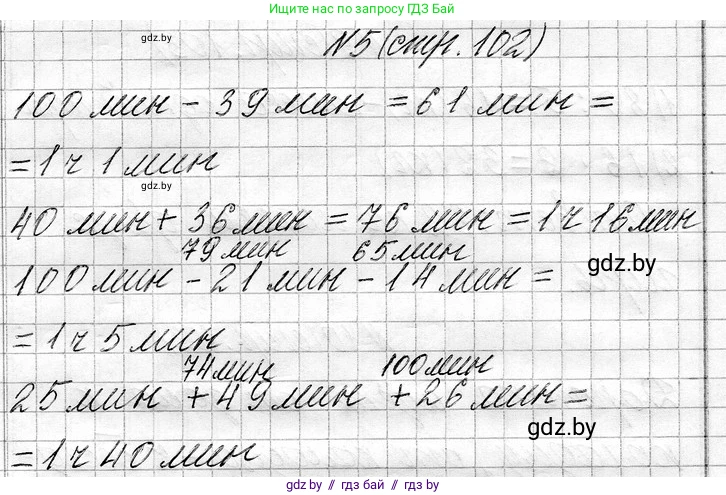 Ищите нас по запросу ГДЗ Бай
gdz.by
N5 (стр. 102)
100 мин - 39 мин = 61 мин =
= 1 ч 1 мин
gdz.by
40 мин + 36 мин = 76 мин = 1 ч 16 мин
79 мин 65 мин
100 мин - 21 мин - 14 мин =
gdz.by
= 1 ч 5 мин
74 мин 100 мин
25 мин + 49 мин + 26 мин =
gdz.by
= 1 ч 40 мин
gdz.by // гдз бай // gdz.by